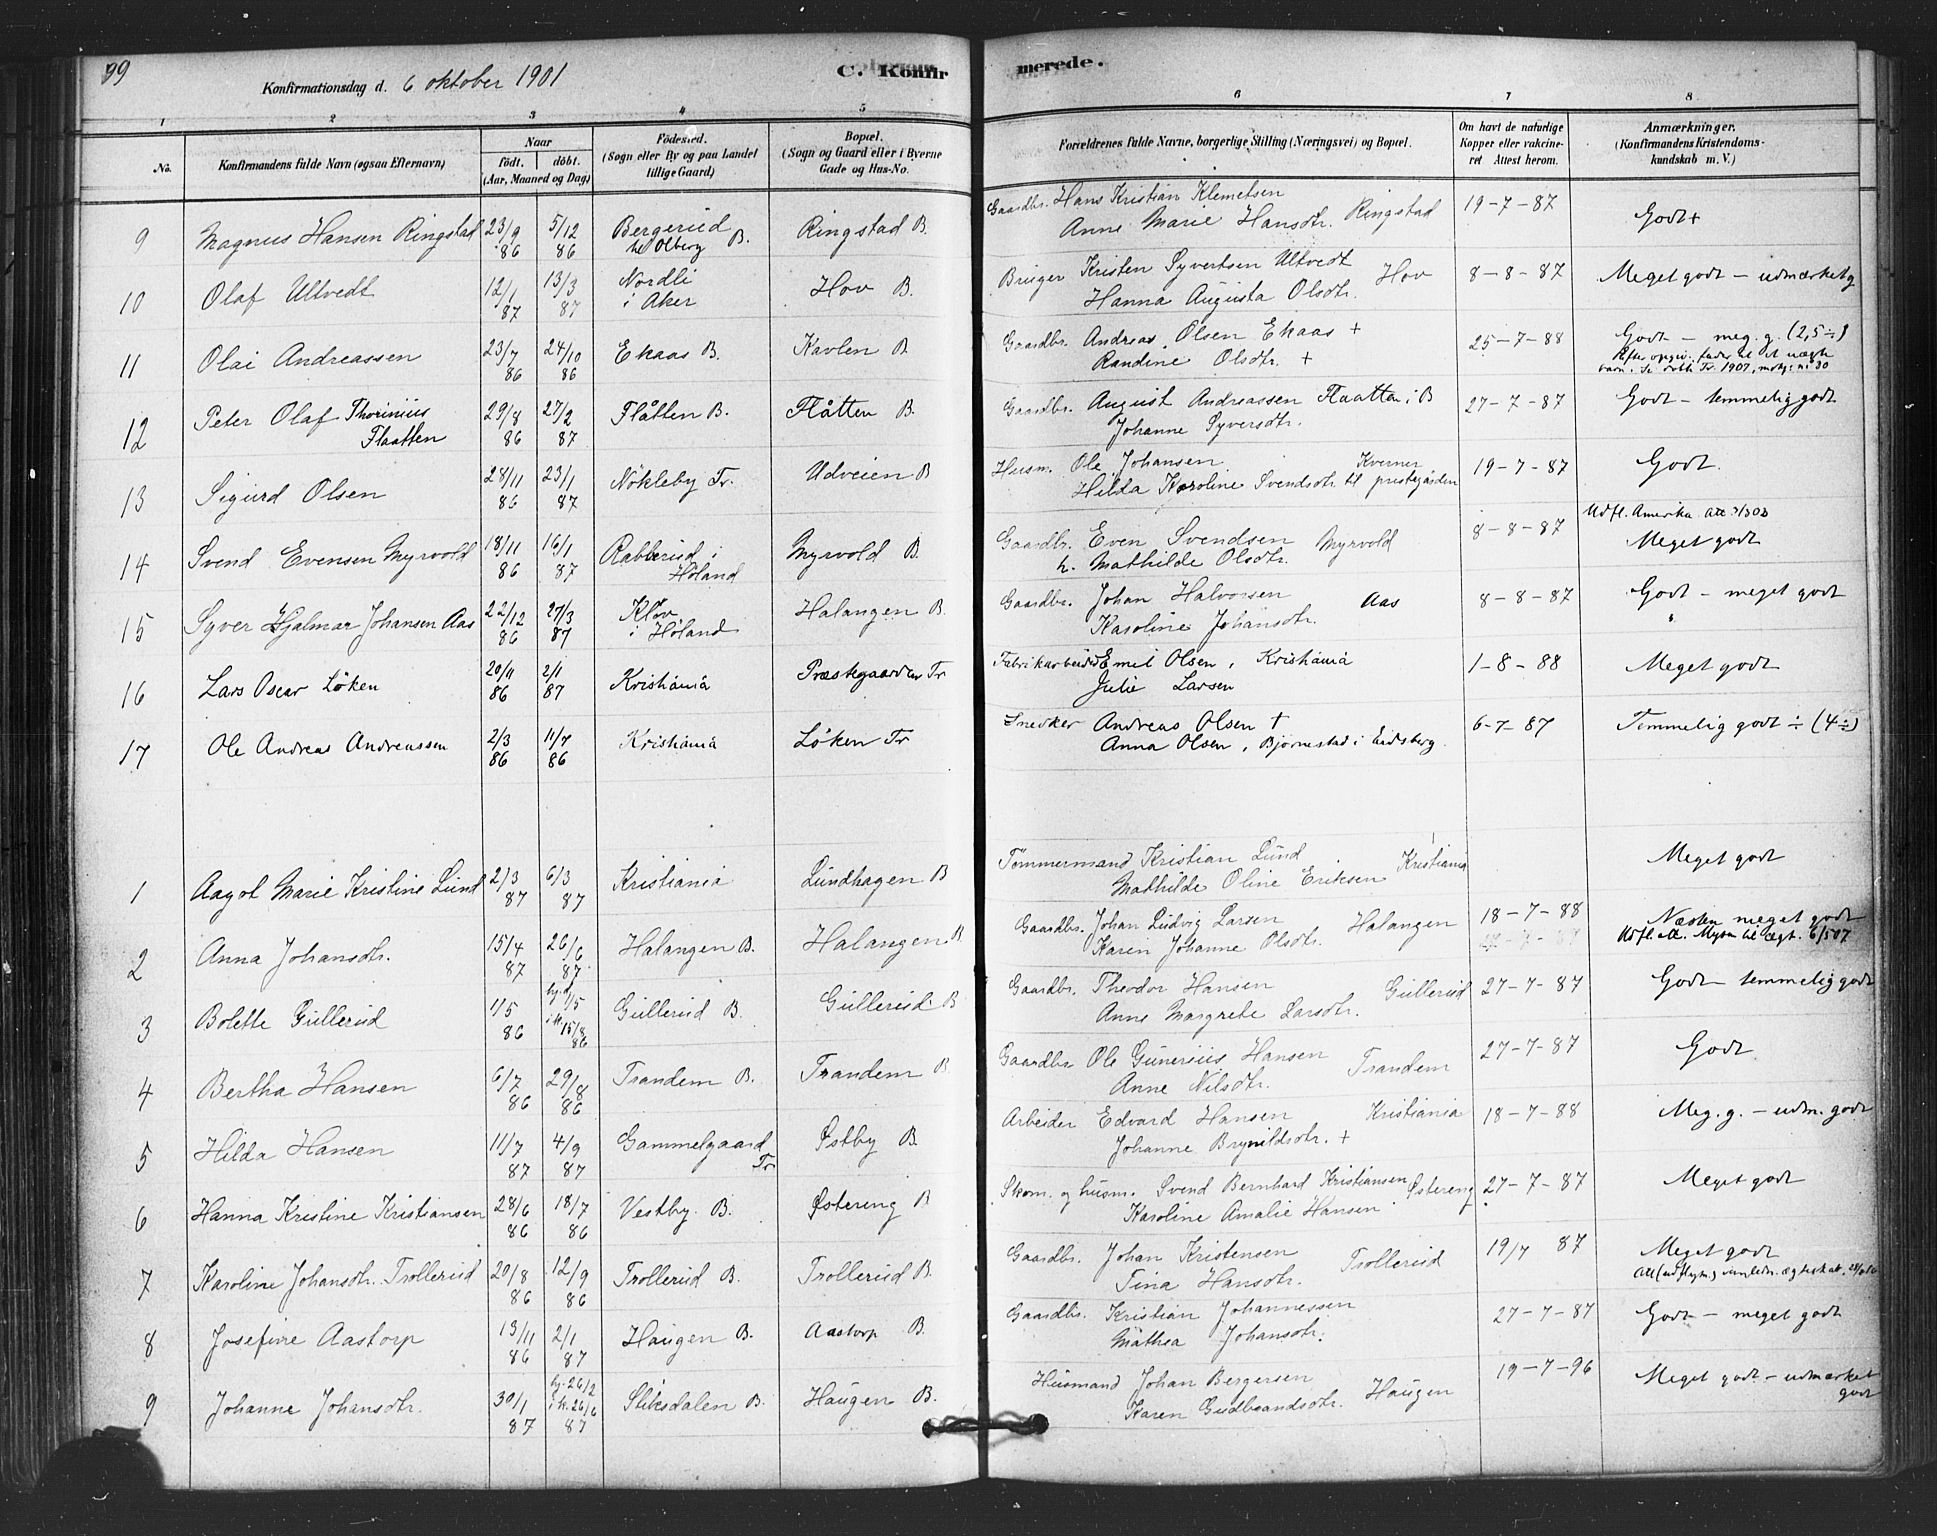 99
Konfirmationsdag d. 6 oktober 1901
C. Konfirmerede.
1 2 3 4 5 6 7 8
No.
Konfirmandens fulde Navn (ogsaa Efternavn)
Naar
födt. döbt.
(Aar, Maaned og Dag)
Födested.
(Sogn eller By og paa Landet
tillige Gaard)
Bopæl.
(Sogn og Gaard eller i Byerne
Gade og Hus-No.
Forældrenes fulde Navne, borgerlige Stilling (Næringsvei) og Bopæl.
Om havt de naturlige
Kopper eller vakcine-
ret Attest herom.
Anmærkninger.
(Konfirmandens Kristendoms-
kundskab m. V.)
9 Magnus Hansen Ringstad 23/9 86 5/12 86 Bergerud u/ Olberg B. Ringstad B. Gaardbr. Hans Kristian Klemetsen Ringstad 19-7-87 Godt +
Anne Marie Hansdtr.
10 Olaf Ultvedt 12/1 87 13/3 87 Nordli i Aker Hov B. Bruger Kristen Syvertsen Ultvedt Hov 8-8-87 Meget godt – udmærket g
Hanna Augusta Olsdtr.
11 Olai Andreassen 23/7 86 24/10 86 Ekaas B. Kavlen B Gaardbr. Andreas Olsen Ekaas + 25-7-88 Godt – meg. g. (2,5 ÷)
Randine Olsdtr. +
1907, n: 30
12 Peter Olaf Thorinius Flaatten 29/8 86 27/2 87 Flåtten B. Flåtten B. Gaardbr. August Andreassen Flaatten i B 27-7-87 Godt – temmelig godt
Johanne Syversdtr.
13 Sigurd Olsen 28/11 86 23/1 87 Nökleby Tr. Udveien B Husm. Ole Johansen Kverner 19-7-87 Godt.
Hilda Karoline Svendsdtr til prestegården
Udfl. Amerika Att.
14 Svend Evensen Myrvold 18/11 86 16/1 87 Rabberud i Höland Myrvold B. Gaardbr. Even Svendsen Myrvold 8-8-87 Meget godt
h. Mathilde Olsdtr.
15 Syver Hjalmar Johansen Aas 22/12 86 27/3 87 Kløv i Høland Halangen B. Gaardbr. Johan Halvorsen Aas 8-8-87 Godt – meget godt
Karoline Johansdtr.
16 Lars Oscar Löken 20/11 86 2/1 87 Kristiania Præstegaarden Tr Fabrikarbeider Emil Olsen, Kristiania 1-8-88 Meget godt
Julie Larsen
17 Ole Andreas Andreassen 2/3 86 11/7 86 Kristiania Löken Tr Snedker Andreas Olsen † 6-7-87 Temmelig godt ÷ (4÷)
Anna Olsen, Bjørnestad i Eidsberg.
1 Aagot Marie Kristine Lund 2/3 87 6/3 87 Kristiania Lundhagen B Tömmermand Kristian Lund Kristiania Meget godt
Mathilde Oline Eriksen
2 Anna Johansdtr. 15/4 87 26/6 87 Halangen B. Halangen B Gaardbr. Johan Ludvig Larsen Halangen 18-7-88 Næsten meget godt
Karen Johanne Olsdtr. Udfl. att. Mysen til ægt. 6/5 07
3 Bolette Gullerud 1/5 86 hj. d. 1/5 i k. 15/8 86 Gullerud B. Gullerud. B Gaardbr. Theodor Hansen Gullerud 27-7-87 Godt – temmelig godt
Anne Margrete Larsdtr.
4 Bertha Hansen 6/7 86 29/8 86 Trandem B. Trandem B Gaardbr. Ole Gunerius Hansen Trandem 27-7-87 Godt
Anne Nilsdtr.
5 Hilda Hansen 11/7 87 4/9 87 Gammelgaard Tr Østby B Arbeider Edvard Hansen Kristiania 18-7-88 Meg. g. – udm. godt
Johanne Brynildsdtr. +
6 Hanna Kristine Kristiansen 28/6 86 18/7 86 Vestby. B. Østereng B Skom. og husm. Svend Bernhard Kristiansen Østereng 27-7-87 Meget godt
Karoline Amalie Hansen
7 Karoline Johansdtr. Trollerud 20/8 86 12/9 86 Trollerud B. Trollerud B. Gaardbr. Johan Kristensen Trollerud 19/7 87 Meget godt
Tina Hansdtr.
8 Josefine Aastorp 13/11 86 2/1 87 Haugen B. Aastorp B. Gaardbr. Kristian Johannessen 27-7-87 Godt – meget godt
Mathea Johansdtr.
9 Johanne Johansdtr. 30/1 87 hj. 26/2 i k. 26/6 87 Sliksdalen B. Haugen B. Husmand Johan Bergersen Haugen 19-7-96 Meget godt – udmærket godt
Karen Gudbrandsdtr.